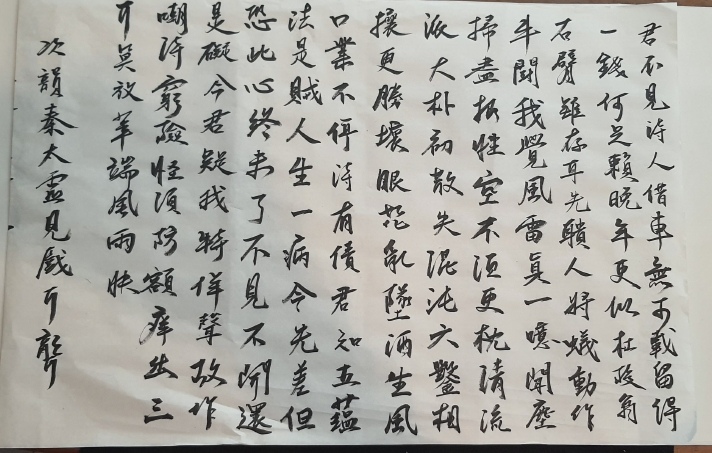 君不見詩人借車無可載留得
一錢何足賴晚年更似杜陵翁
右臂雖存耳先聵人將蟻動作
牛鬪我覺風雷真一噫聞塵
掃盡根性空不須更枕清流
派大朴初散失混沌六鑿相
攘更勝壞眼花亂墜酒生風
口業不停詩有債君知五蘊
法是賊人生一病今先差但
恐此心終未了不見不聞還
是礙今君疑我特佯聾故作
嘲詩窮險怪須防額癢出三
耳莫放筆端風雨快
次韻秦太虛見戲耳聾